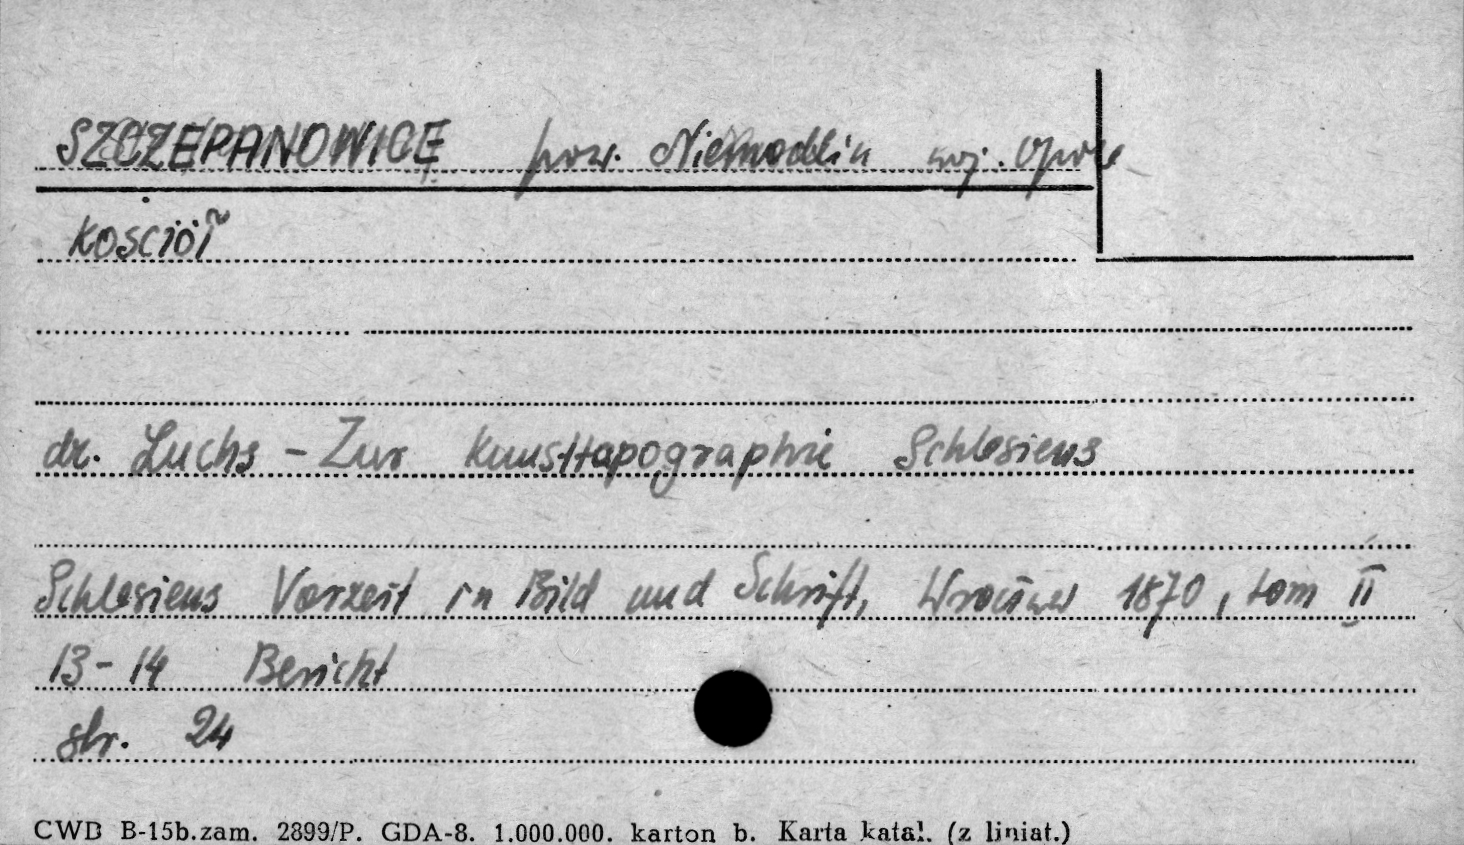 SZCZEPANOWICE pow. Niemodlin woj. Opole
kościół
dr. Luchs - Zur Kunsttapographie Schlesiens
Schlesiens Vorzeit in Bild und Schrift, Wrocław 1870, tom II
13-14 Bericht
str. 24
CWD B-15b.zam. 2899/P. GDA-8. 1.000.000. karton b. Karta katal. (z liniat.)